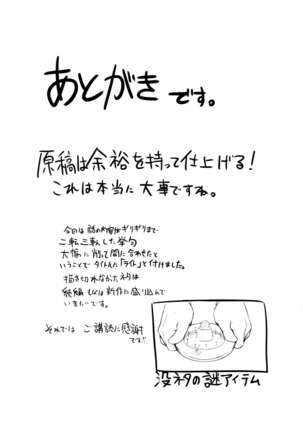 あとがきです。
原稿は余裕を持って仕上げる!
これは本当に大事ですね。
今回は話の内容がギリギリまで
二転三転した挙句
大幅に削って間に合わせたと
いうことでタイトルに「ライト」と付けました。
描き切れなかったネタは
続編もしくは新作に盛り込んで
いきたいです。
それでは ご購読に感謝
です!!
没ネタの謎アイテム